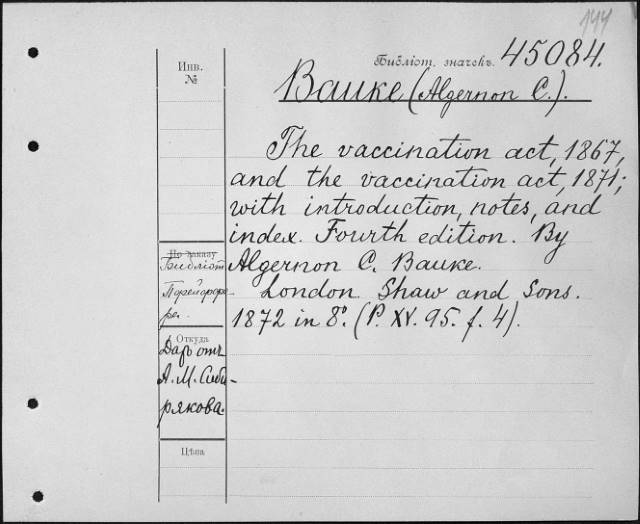 144
Инв.
№
Библіот. значекъ. 45084.
Bauke (Algernon C.).
The vaccination act, 1867,
and the vaccination act, 1871;
with introduction, notes, and
index. Fourth edition. By
Algernon C. Bauke.
London. Shaw and Sons.
1872 in 8º. (P. XV. 95. f. 4).
По заказу
Библіот.
Откуда
Даръ отъ
А. М. Сиби-
рякова.
Цѣна